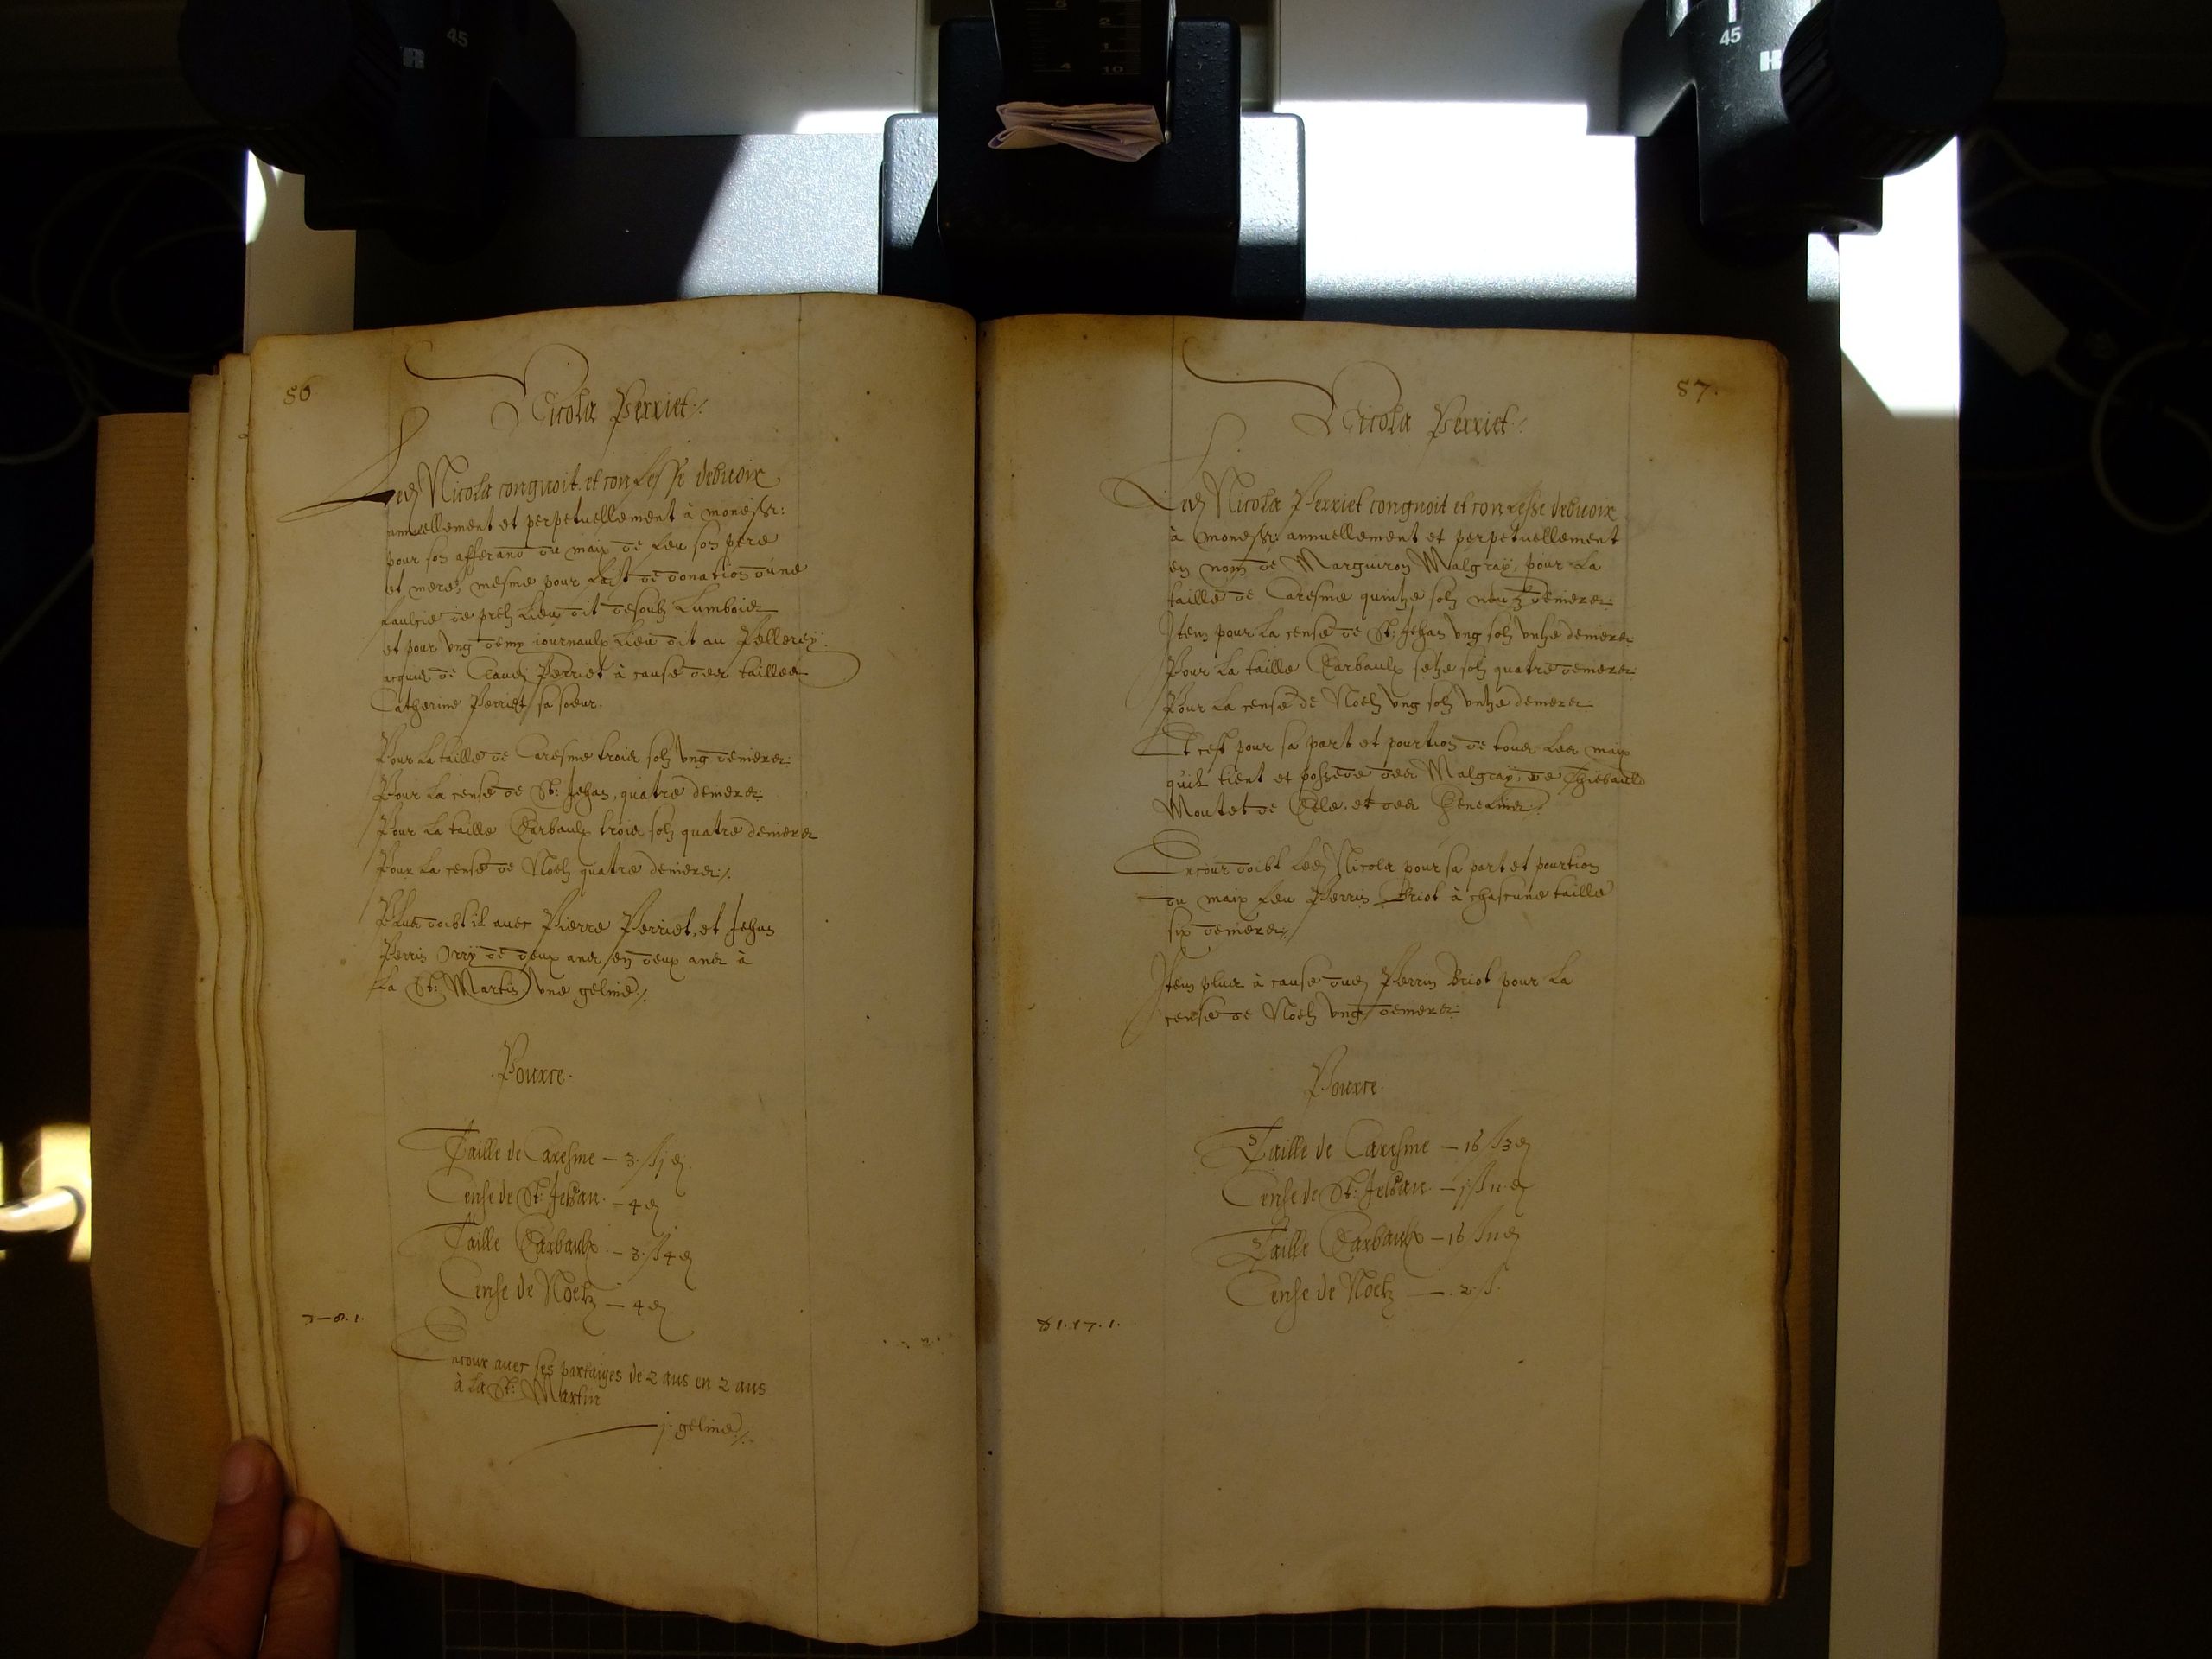 86
Nicola Perriet
Led Nicola congnoit et confesse debuoir
annuellement et perpetuellement à monessr:
pour son afferand du maix de feu son pere
et mere, mesme pour de donation dune
faulcie de prelz lieu dit desoubz Lumbois
et pour ung demy iournaulx lieu dit au Pellerey
acquis de Claud Perriet à cause des tailles
Catherine Perriet sa soeur.
Pour la taille de Caresme trois solz ung deniers
Pour la cense de St: Jehan, quatre deniers
Pour la taille Carbaulx trois solz quatre deniers
Pour la cense de Noelz quatre deniers
Plus doibt il avec Pierre Perriet, et Jehan
Perrin Orry de deux ans en deux ans à
la St: Martin une geline
Pource
Taille de Caresme – 3 ß j d
Cense de St: Jehan – 4 d
Taille Carbaulx – 3 ß 4 d
Cense de Noelz – 4 d
7–8.1.
Encour avec ses partaiges de 2 ans en 2 ans
à la St: Martin
j. geline
87.
Nicola Perriet
Led Nicola Perriet congnoit et confesse debuoir
à monessr: annuellement et perpetuellement
en nom de Marguiron Malgray, pour la
taille de Caresme quinze solz neufz deniers
Item pour la cense de St: Jehan ung solz unze deniers
Pour la taille Carbaulx seze solz quatre deniers
Pour la cense de Noelz ung solz unze deniers
Et cest pour sa part et pourtion de tous les maix
quil tient et possede des Malgray, de Thiebauld
Moutet de et des
Encour doibt led Nicola pour sa part et pourtion
du maix feu Perrin Briot à chascune taille
six deniers
Item plus à cause dud Perrin Briot pour la
cense de Noelz ung deniers
Pource
Taille de Caresme – 16 ß 3 d
Cense de St: Jehan – j ß 11 d
Taille Carbaulx – 16 ß 11 d
Cense de Noelz – 2 ß
81.17.1.